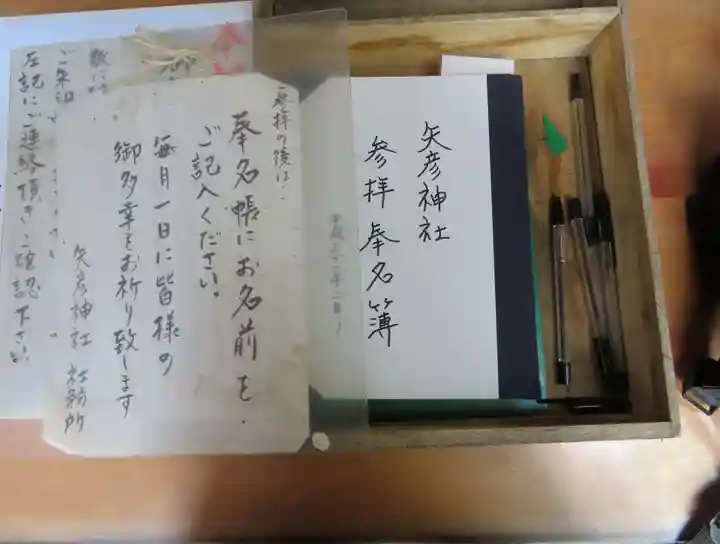 矢彦神社
参拝奉名簿
参拝の後は‥
奉名帳にお名前を
ご記入ください。
毎月一日に皆様の
御多幸をお祈り致します
矢彦神社 社務所
ご朱印
左記にご連絡頂きご確認下さい